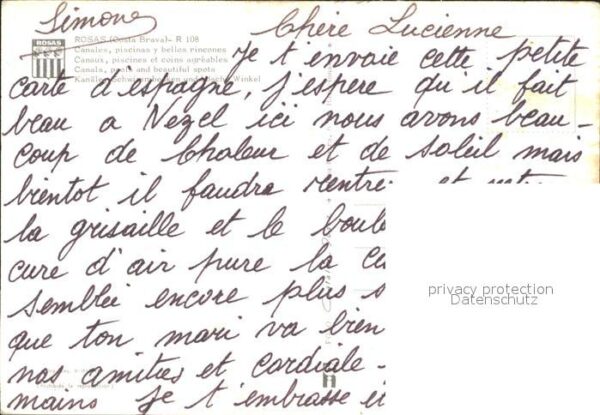 Simone
Chère Lucienne
ROSAS
ROSAS (Costa Brava) - R 108
Canales, piscinas y bellos rincones
Canaux, piscines et coins agréables
Canals, and beautiful spots
Winkel
Je t'envoie cette petite
carte d'espagne, j'espere qu'il fait
beau a Vezel ici nous avons beau-
coup de Chaleur et de soleil mais
bientot il faudra
la grisaille et le boulo
cure d'air pure la
semblei encore plus
que ton mari va bien
nos amities et cordiale-
mains Je t'embrasse
privacy protection
Datenschutz